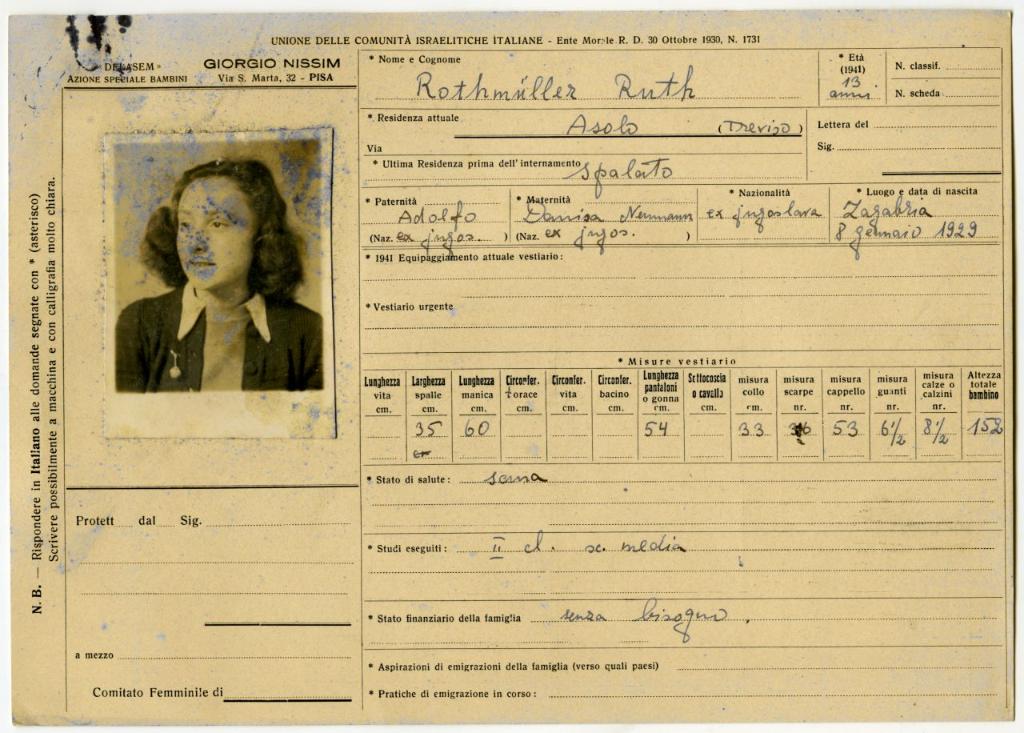 UNIONE DELLE COMUNITÀ ISRAELITICHE ITALIANE - Ente Morale R. D. 30 Ottobre 1930, N. 1731
DELASEM
AZIONE SPECIALE BAMBINI
GIORGIO NISSIM
Via S. Marta, 32 - PISA
* Nome e Cognome
Rothmüller Ruth
* Età
(1941)
13
anni
N. classif.
N. scheda
* Residenza attuale
Asolo (Treviso)
Via
Lettera del
Sig.
* Ultima Residenza prima dell'internamento
Spalato
* Paternità
Adolfo
(Naz. ex jugos. )
* Maternità
Danisa Neumann
(Naz. ex jugos. )
* Nazionalità
ex jugoslava
* Luogo e data di nascita
Zagabria
8 gennaio 1929
* 1941 Equipaggiamento attuale vestiario:
* Vestiario urgente
* Misure vestiario
Lunghezza vita cm.
Larghezza spalle cm. 35
Lunghezza manica cm. 60
Circonfer. Torace cm.
Circonfer. vita cm.
Circonfer. bacino cm.
Lunghezza pantaloni o gonna cm. 54
Sottocoscia o cavallo cm.
misura collo cm. 33
misura scarpe nr. 36
misura cappello nr. 53
misura guanti nr. 6 1/2
misura calze o calzini nr. 8 1/2
Altezza totale bambino 152
* Stato di salute: sana
* Studi eseguiti: II cl. sc. media
* Stato finanziario della famiglia senza bisogno.
* Aspirazioni di emigrazioni della famiglia (verso quali paesi)
* Pratiche di emigrazione in corso:
Protett dal Sig.
a mezzo
Comitato Femminile di
N. B. — Rispondere in Italiano alle domande segnate con * (asterisco)
Scrivere possibilmente a macchina e con calligrafia molto chiara.